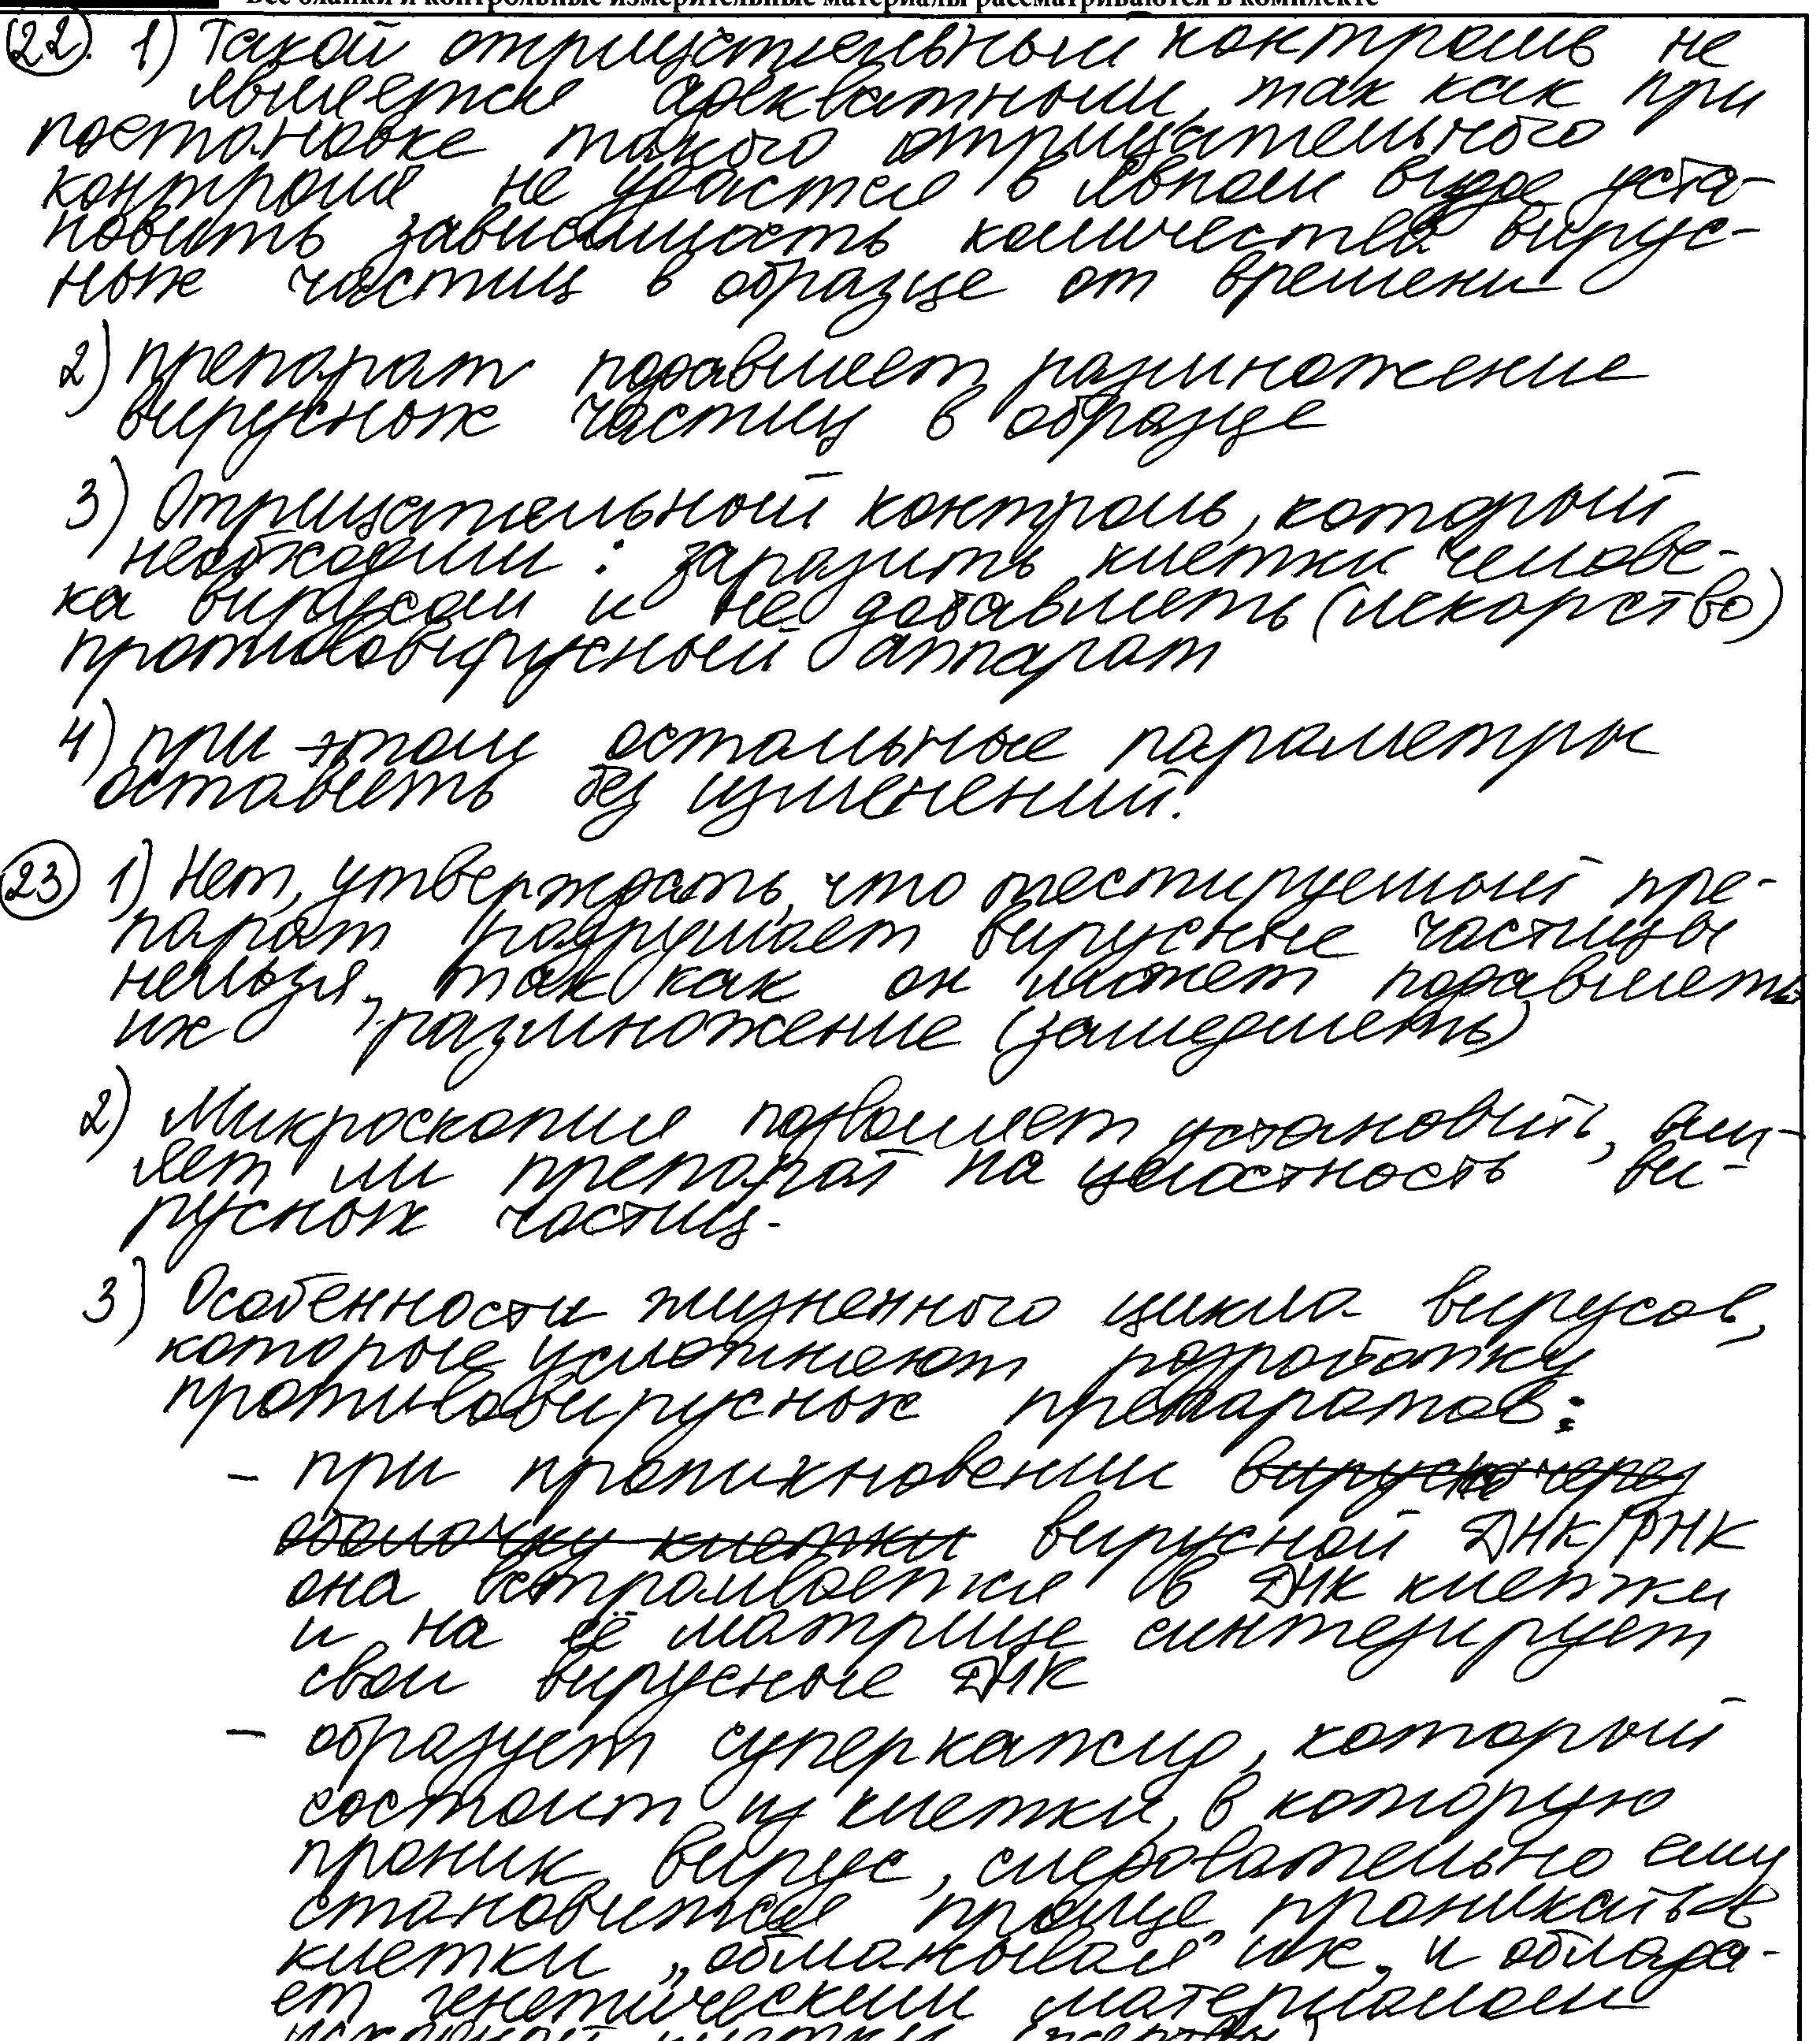 Все бланки и контрольные измерительные материалы рассматриваются в комплекте
22. 1) Такой отрицательный контроль не
является адекватным, так как при
постановке такого отрицательного
контроля не удастся в явном виде уста-
новить зависимость количества вирус-
ных частиц в образце от времени
2) препарат подавляет размножение
вирусных частиц в образце
3) Отрицательный контроль, который
необходим: заразить клетки челове-
ка вирусом и не добавлять (лекарство)
противовирусный аппарат
4) при этом остальные параметры
оставить без изменений.
23 1) Нет, утверждать, что тестируемый пре-
парат разрушает вирусные частицы
нельзя, так как он может подавлять
их размножение (замедлять)
2) Микроскопия позволяет установить, вли-
яет ли препарат на целостность ви-
русных частиц.
3) Особенности жизненного цикла вирусов,
которые усложняют разработку
противовирусных препаратов:
- при проникновении вируса через
оболочку клетки вирусной ДНК/РНК
она встраивается в ДНК клетки
и на её матрице синтезирует
свои вирусные ДНК
- образует суперкапсид, который
состоит из клетки, в которую
проник вирус, следовательно ему
становится проще проникать в
клетки „обманывая" их, и облада-
ет генетическим материалом
исходной клетки